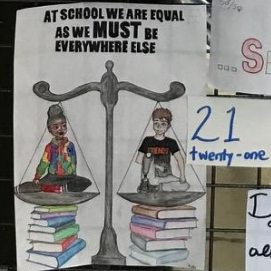 AT SCHOOL WE ARE EQUAL
AS WE MUST BE
EVERYWHERE ELSE
FRIENDS
21
twenty-one